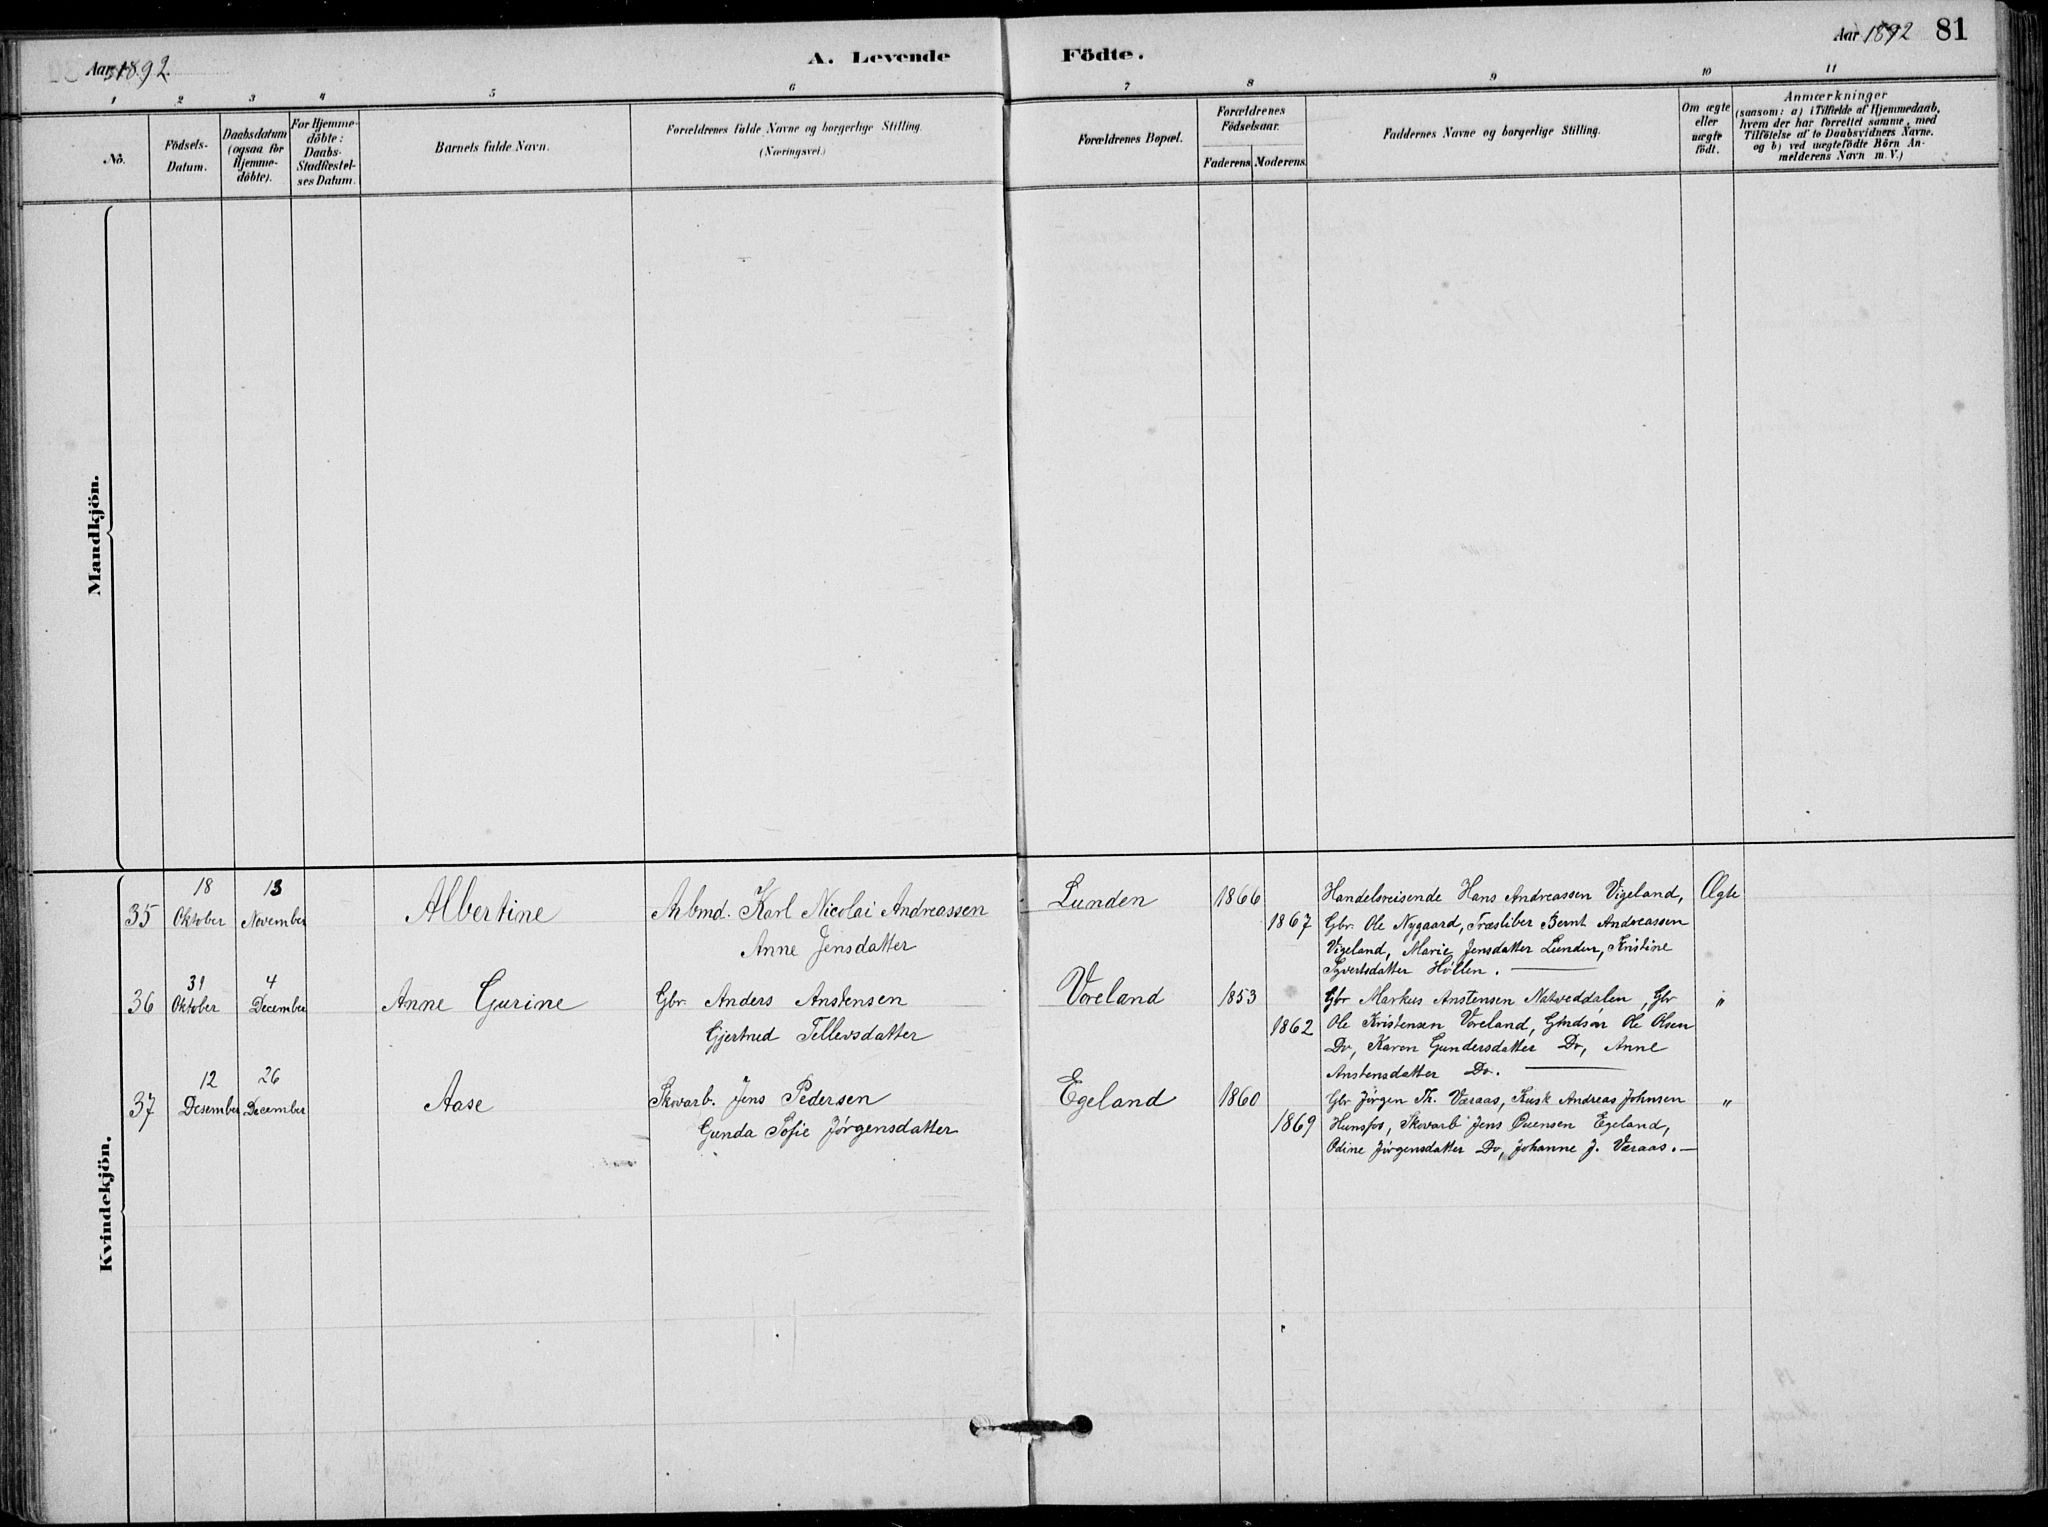 Aar 1892.
A. Levende Födte.
Aar 1892 81
1 2 3 4 5 6 7 8 9 10 11
No.
Födsels-Datum.
Daabsdatum (ogsaa for Hjemme-döbte).
For Hjemme-döbte: Daabs-Stadfæstel-ses Datum.
Barnets fulde Navn.
Forældrenes fulde Navne og borgerlige Stilling.
(Næringsvei.)
Forældrenes Bopæl.
Forældrenes Födselsaar.
Faderens. Moderens.
Faddernes Navne og borgerlige Stilling.
Om ægte eller uægte födt.
Anmærkninger
(saasom: a) i Tilfælde af Hjemmedaab,
hvem der har forrettet samme, med
Tilföielse af to Daabsvidners Navne.
og b) ved uægtefödte Börn An-
melderens Navn m. V.)
Mandkjön.
Kvindekjön.
35 18 Oktober 13 November Albertine Arbmd. Karl Nicolai Andreassen
Anne Jensdatter
Lunden 1866 1867
Handelsreisende Hans Andreassen Vigeland,
Gbr. Ole Nygaard, Træsliber Bernt Andreassen
Vigeland, Marie Jensdatter Lunden, Kristine
Syvertsdatter Høllen.
Ægte
36 31 Oktober 4 December Anne Gurine Gbr. Anders Anstensen
Gjertrud Tellevsdatter
Voreland 1853 1862
Gbr Markus Anstensen Natveddalen, Gbr
Ole Kristensen Voreland, Gbrdsøn Ole Olsen
Do, Karen Gundersdatter Do, Anne
Anstensdatter Do.
"
37 12 Desember 26 December Aase Skovarb. Jens Pedersen
Gunda Sofie Jørgensdatter
Egeland 1860 1869
Gbr Jørgen Th. Væraas, Kusk Andreas Johnsen
Hunsfos, Skovarb Jens Ouensen Egeland,
Odine Jørgensdatter Do, Johanne J. Væraas.
"